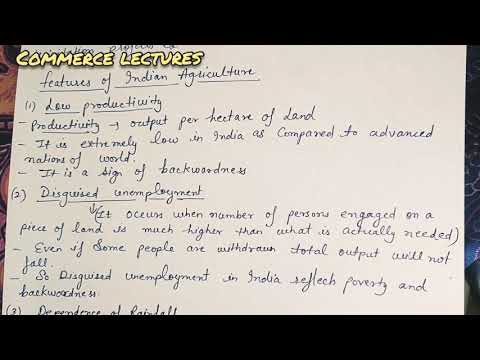 COMMERCE LECTURES
features of Indian Agriculture
(1) Low productivity
- Productivity → output per hectare of Land
- It is extremely low in India as Compared to advanced
nations of world.
- It is a sign of backwardness
(2) Disguised unemployment
(It occurs when number of persons engaged on a
piece of land is much higher than what is actually needed)
- Even if Some people are withdrawn total output will not
fall.
- So Disguised unemployment in India reflech poverty and
backwardness.
(3) Dependence of Rainfall